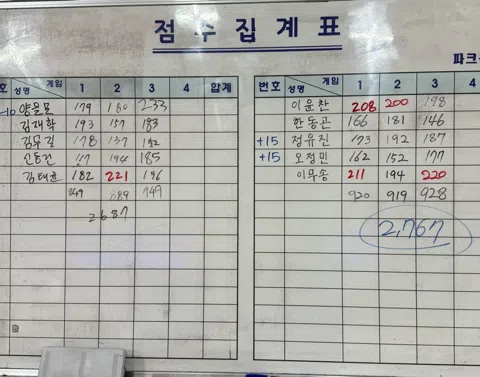 점수집계표
파크
호 성명 게임 1 2 3 4 합계
-10 양을모 179 160 233
김재학 193 157 183
178 137 192
117 194 185
김태균 182 221 196
849 889 749
2687
번호 성명 게임 1 2 3 4
이운찬 208 200 198
한동관 166 181 146
+15 정유진 173 192 187
+15 오정민 162 152 177
이무송 211 194 220
920 919 928
2,767